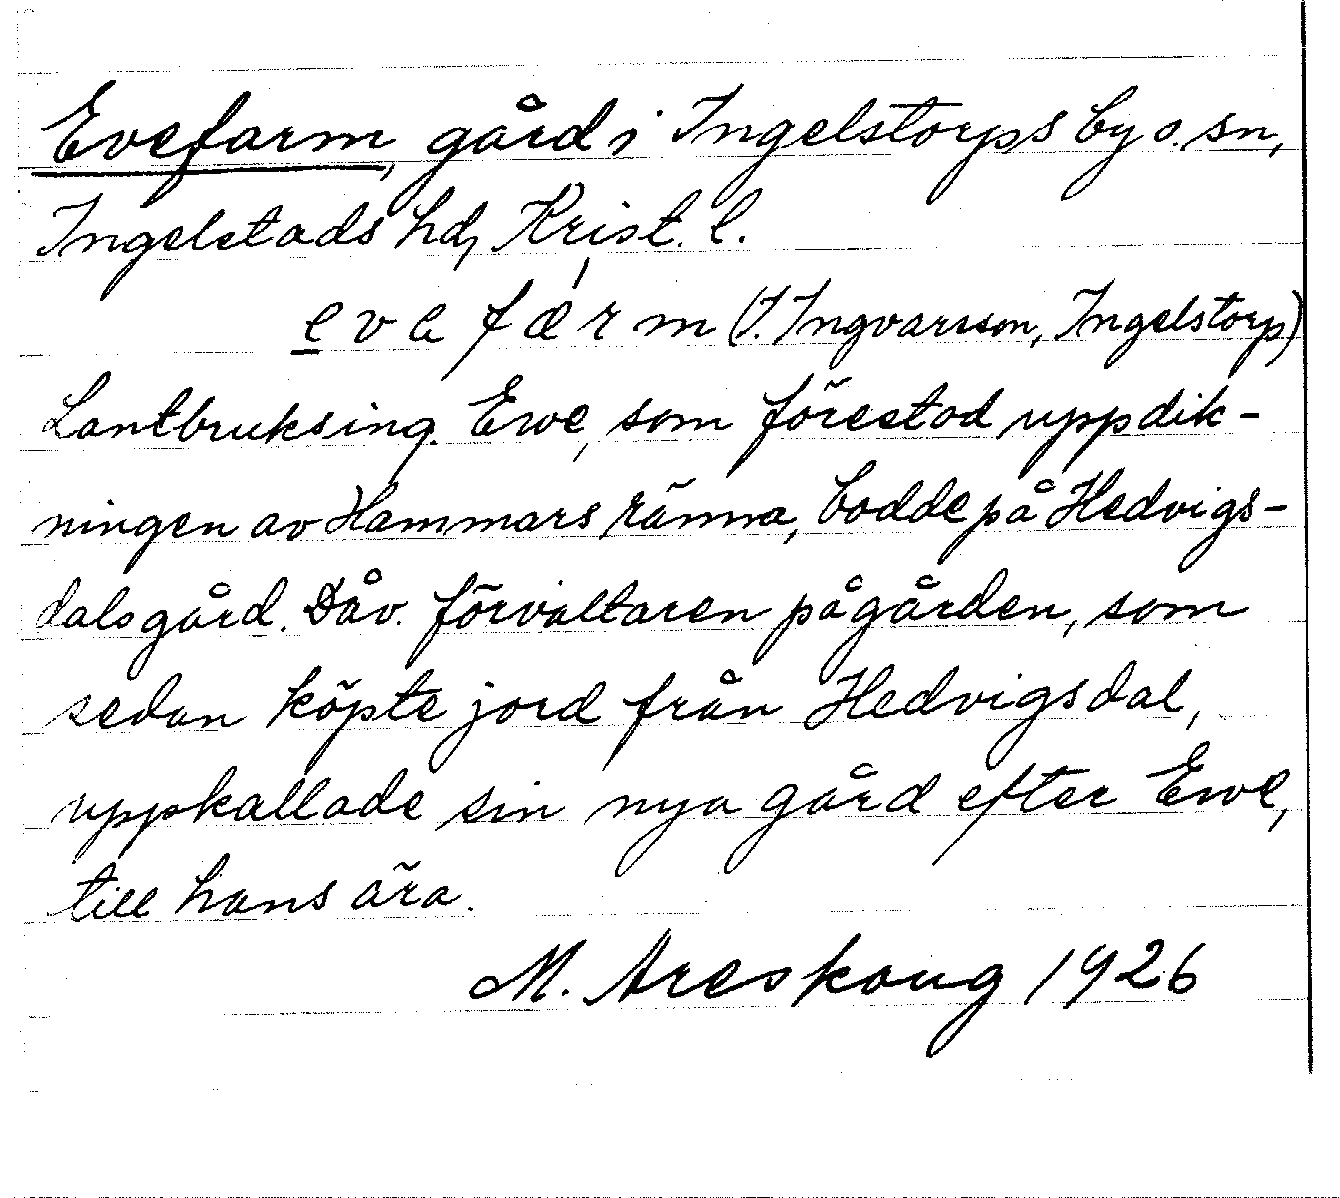 Evefarm, gård i Ingelstorps by o. sn,
Ingelstads hd, Krist. l.
e v a f ǽ r m (I. Ingvarsson, Ingelstorp)
Lantbruksing. Ewe, som förestod uppdik-
ningen av Hammars ränna, bodde på Hedvigs-
dalsgård. Dåv. förvaltaren på gården, som
sedan köpte jord från Hedvigsdal,
uppkallade sin nya gård efter Ewe,
till hans ära.
M. Areskoug 1926